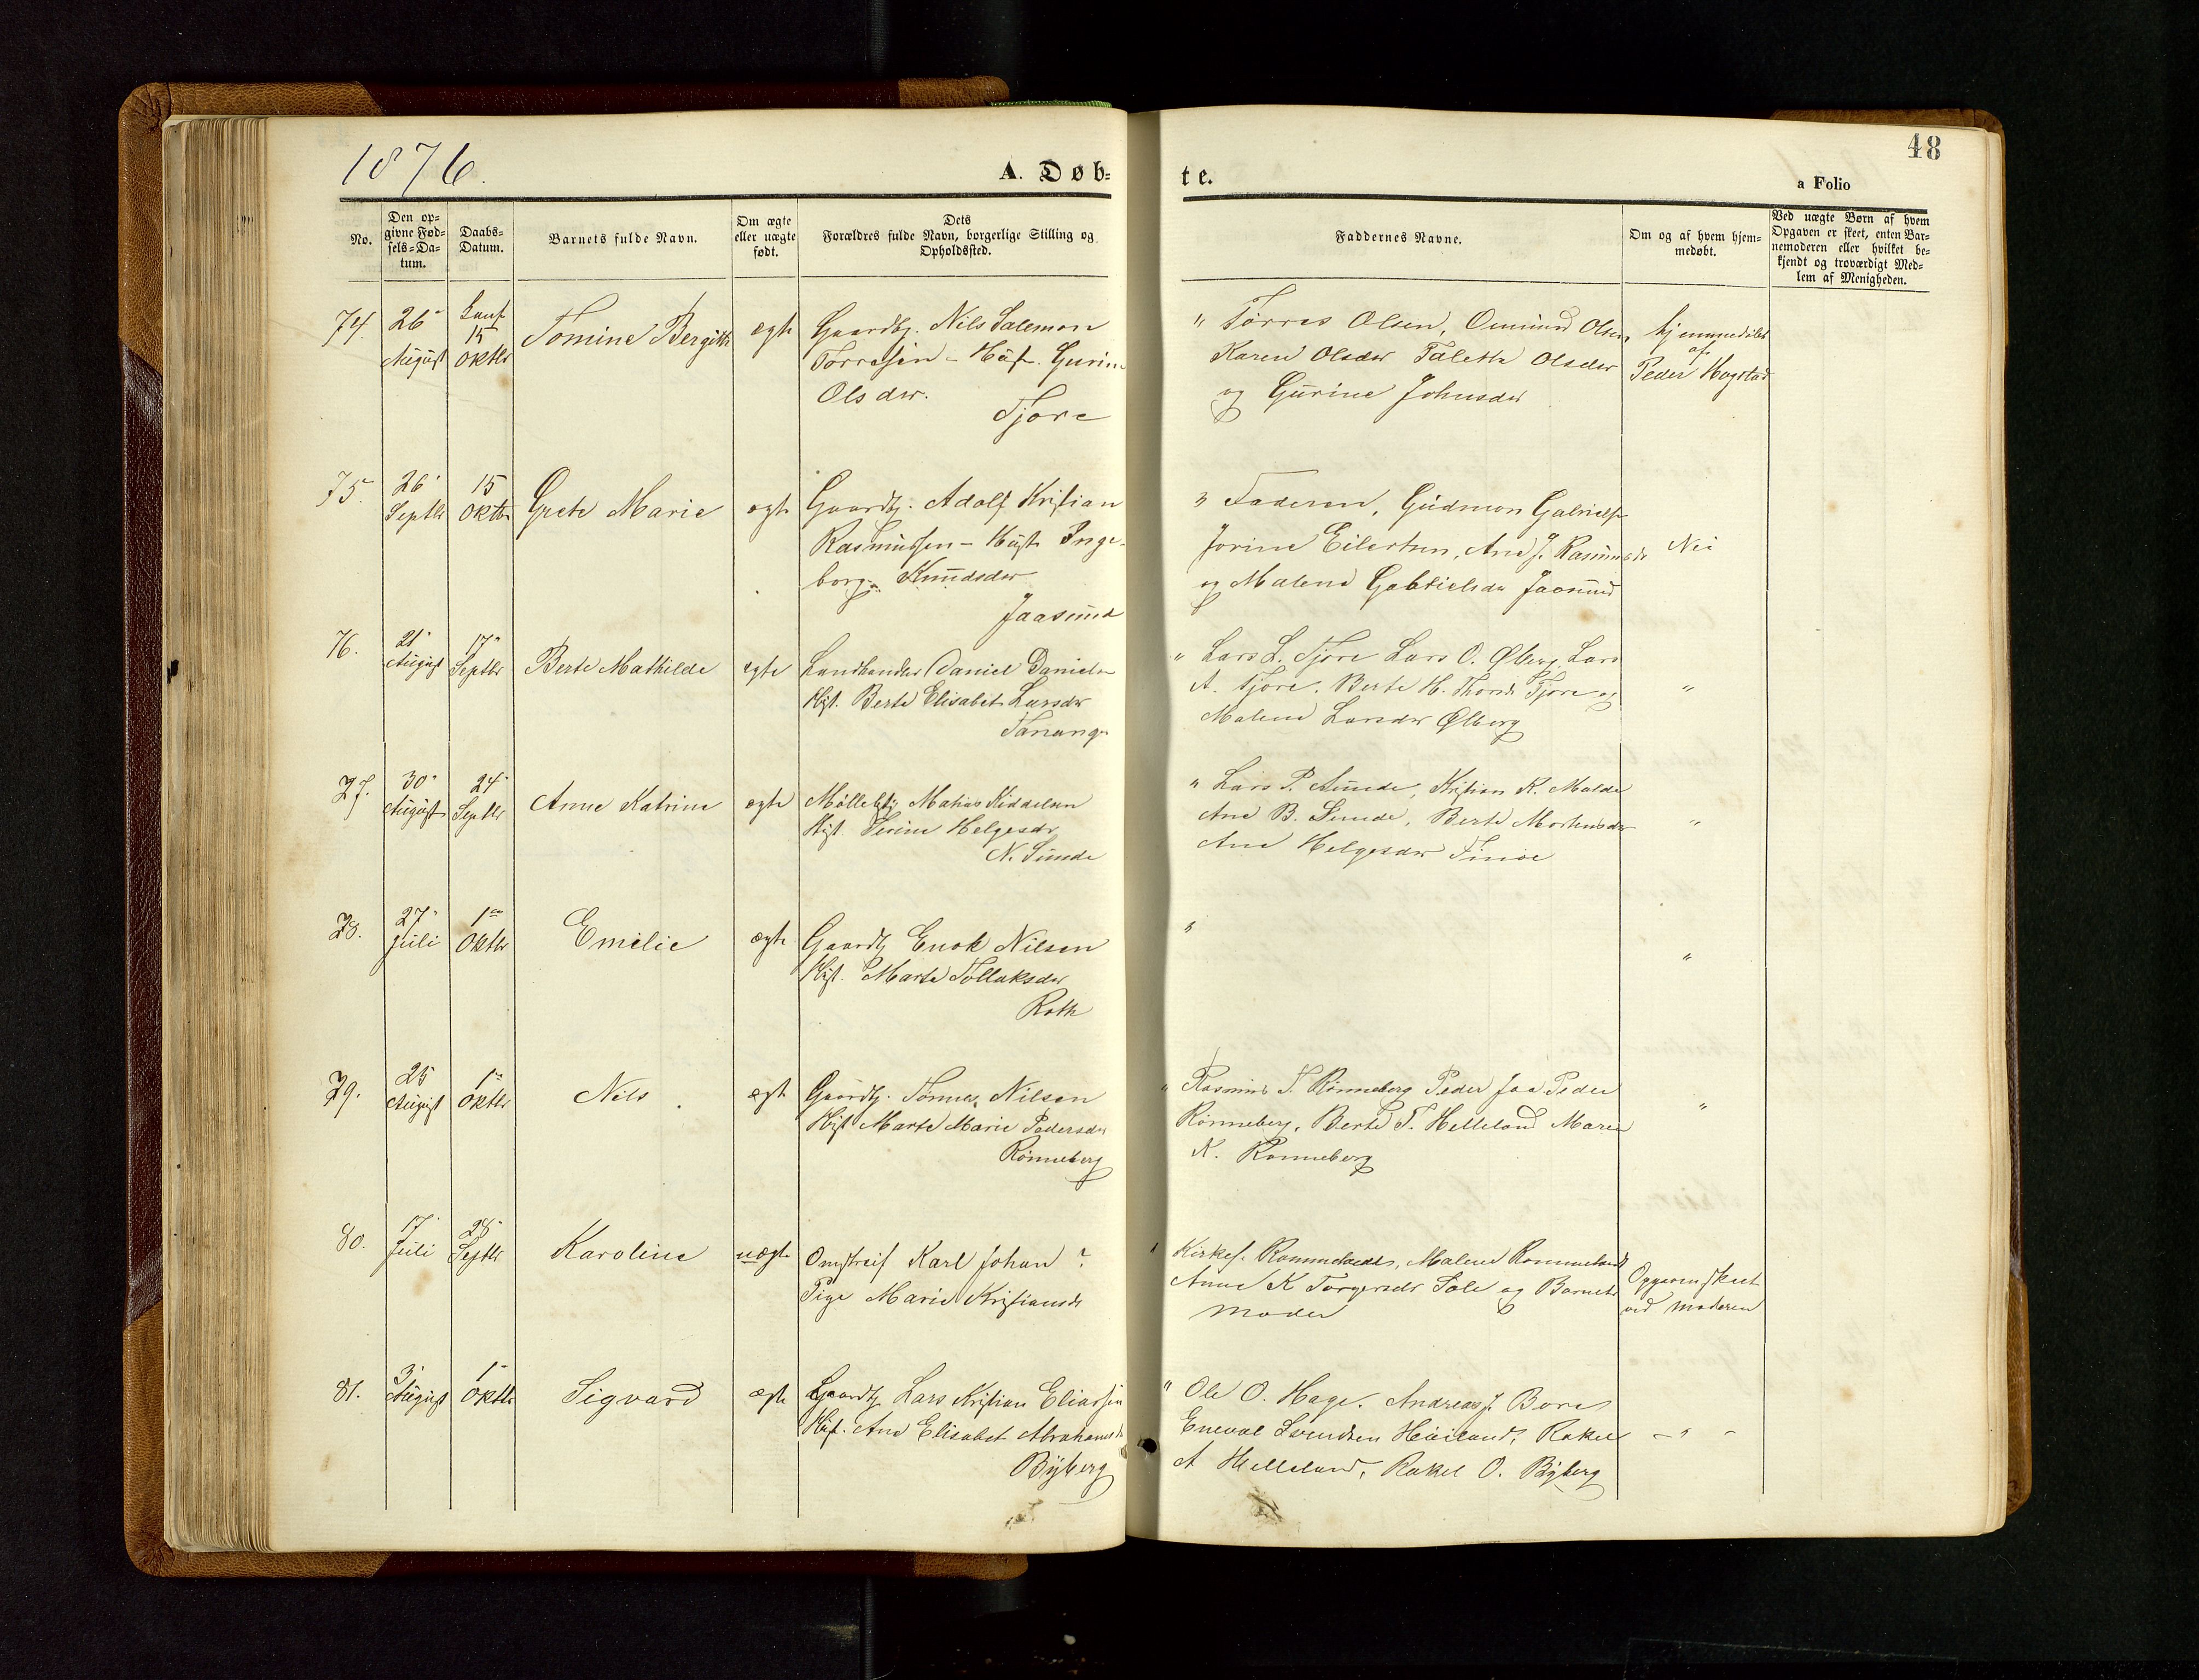 1876.
A. Døb-
te.
48
a Folio
No.
Den op-
givne Fød-
sels-Da-
tum.
Daabs-
Datum.
Barnets fulde Navn.
Om ægte
eller uægte
født.
Dets
Forældres fulde Navn, borgerlige Stilling og
Opholdssted.
Faddernes Navne.
Om og af hvem hjem-
medøbt.
Ved uægte Børn af hvem
Opgaven er skeet, enten Bar-
nemoderen eller hvilket be-
kjendt og troværdigt Med-
lem af Menigheden.
74.
26
August
15
Oktbr
Tomine Bergitte
ægte
Gaardbr. Nils Salemon
Torresen - Hust. Gurine
Olsdtr.
Tjora
" Tørres Olsen, Omund Olsen,
Karen Olsdtr Talette Olsdtr
og Gurine Johnsdtr
hjemmedøbt
af
Peder Hogstad
75.
26
Septbr
15
Oktbr
Grete Marie
ægte
Gaardbr. Adolf Kristian
Rasmussen - Hust Inge-
borg Knudsdtr
Jaasund
" Faderen, Gudmon Gabrielsen
Jorine Eilertsen, Ane J. Rasmusdr
og Malene Gabrielsdr Jaasund
Nei
76.
21
August
17
Septbr
Berte Mathilde
ægte
Landhandler Daniel Danielsen
Hust. Berte Elisabet Larsdtr
Tananger
" Lars L. Tjora Lars O. Ølberg, Lars
A. Tjora. Berte H. Thords Tjora og
Malene Larsdtr Ølberg
"
77.
30
August
24
Septbr
Anne Katrine
ægte
Møllebstr Matias Kiddelsen
Hust. Serine Helgesdr
N. Sunde
" Lars P. Sunde, Kristian K. Malde
Ane B. Sunde, Berte Mortensdtr
Ane Helgesdtr Finøe
"
78.
27
Juli
1
Oktbr
Emilie
ægte
Gaardbr Enok Nilsen
Hust. Marta Tollaksdtr
Roth
"
"
79.
25
August
1
Oktbr
Nils
ægte
Gaardbr. Tønnes Nilsen
Hust Marte Marie Pedersdtr
Rønneberg
" Rasmus T. Rønneberg Peder Joa Peder
Rønneberg, Berte T. Helleland Maren
K. Rønneberg
"
80.
17
Juli
28
Septbr
Karoline
uægte
Omstreif Karl Johan ?
Pige Marie Kristiansdr
Kirkes. Rommetvedt, Malene Rommetvedt
Anne K Torgersdr Sole og Barnets
Moder
Opgaven skeet
ved moderen
81.
3
August
1
Oktbr
Sigvard
ægte
Gaardbr Lars Kristian Eliassen
Hust. Ane Elisabet Abrahamsdr
Byberg
" Ole O. Hage. Andreas J. Bore
Eneval Svendsen Høiland, Rakel
A Helleland, Rakel O. Byberg
- " -